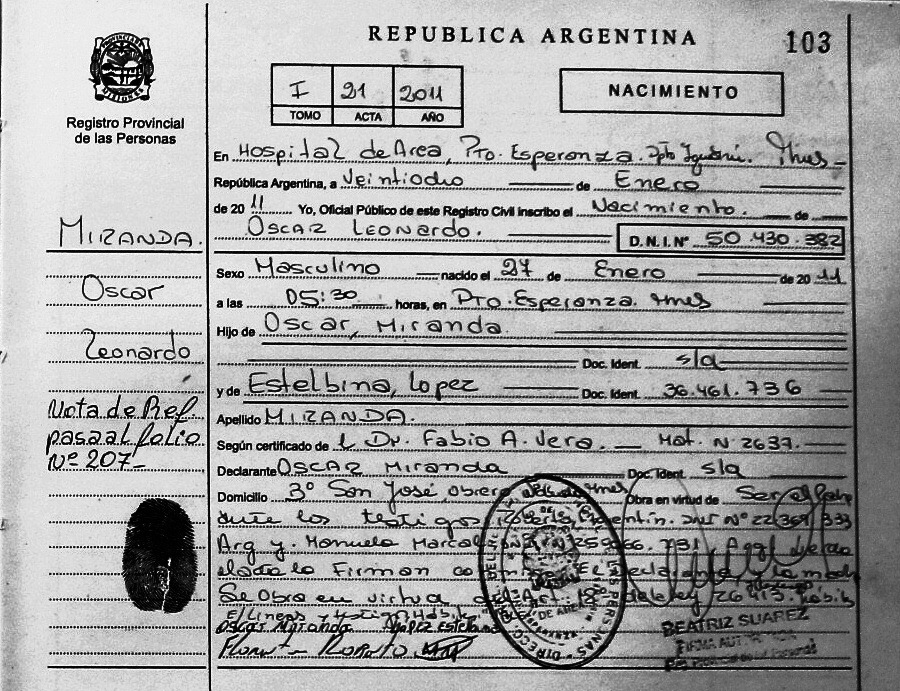 REPUBLICA ARGENTINA
103
PROVINCIA DE MISIONES
Registro Provincial
de las Personas
I 21 2011
TOMO ACTA AÑO
NACIMIENTO
En Hospital de Area, Pto. Esperanza. Dpto Iguazú. Mnes
República Argentina, a Veintiocho de Enero
de 2011 Yo, Oficial Público de este Registro Civil inscribo el Nacimiento. de
OSCAR LEONARDO. D.N.I. Nº 50.430.382
Sexo Masculino nacido el 27 de Enero de 2011
a las 05:30 horas, en Pto. Esperanza. Mnes
Hijo de Oscar, Miranda
Doc. Ident. s/a
y de Estelbina, Lopez Doc. Ident. 36.461.736
Apellido MIRANDA.
Según certificado de l Dr. Fabio A. Vera. Mat. N 2637.
Declarante OSCAR Miranda Doc. Ident. s/a
Domicilio 3º San José, obrero Mnes Obra en virtud de Ser el Padre
los testigos Nº 22 369 333
Arg y. Manuela 731
lo Firman la madre
Se Obra en virtud Ley 26413.
Oscar Miranda Lopez Estelbina
BEATRIZ SUAREZ
MIRANDA.
Oscar
Leonardo
Nota de Ref.
pasa al folio
Nº 207-